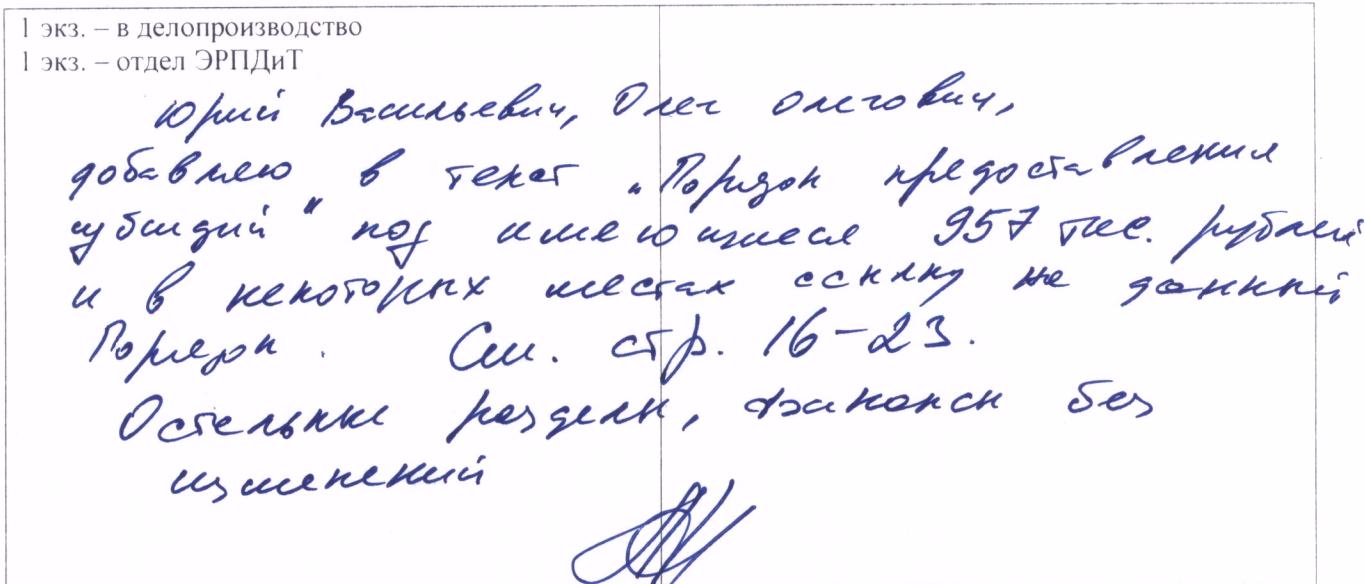 1 экз. – в делопроизводство
1 экз. – отдел ЭРПДиТ
Юрий Васильевич, Олег Олегович,
добавляю в текст „Порядок предоставления
субсидий" под имеющиеся 957 тыс. рублей
и в некоторых местах ссылку на данный
Порядок. См. стр. 16-23.
Остальные разделы, финансы без
изменений